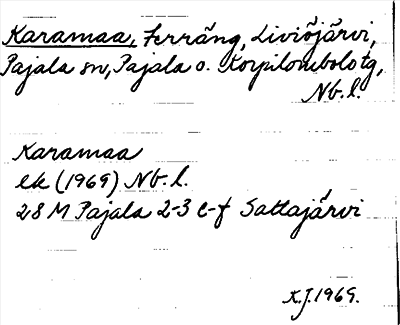 Karamaa, terräng, Liviöjärvi,
Pajala sn, Pajala o. Korpilombolo tg,
Nb.l.
Karamaa
ek (1969) Nb.l.
28 M Pajala 2-3 e-f Sattajärvi
K.J. 1969.